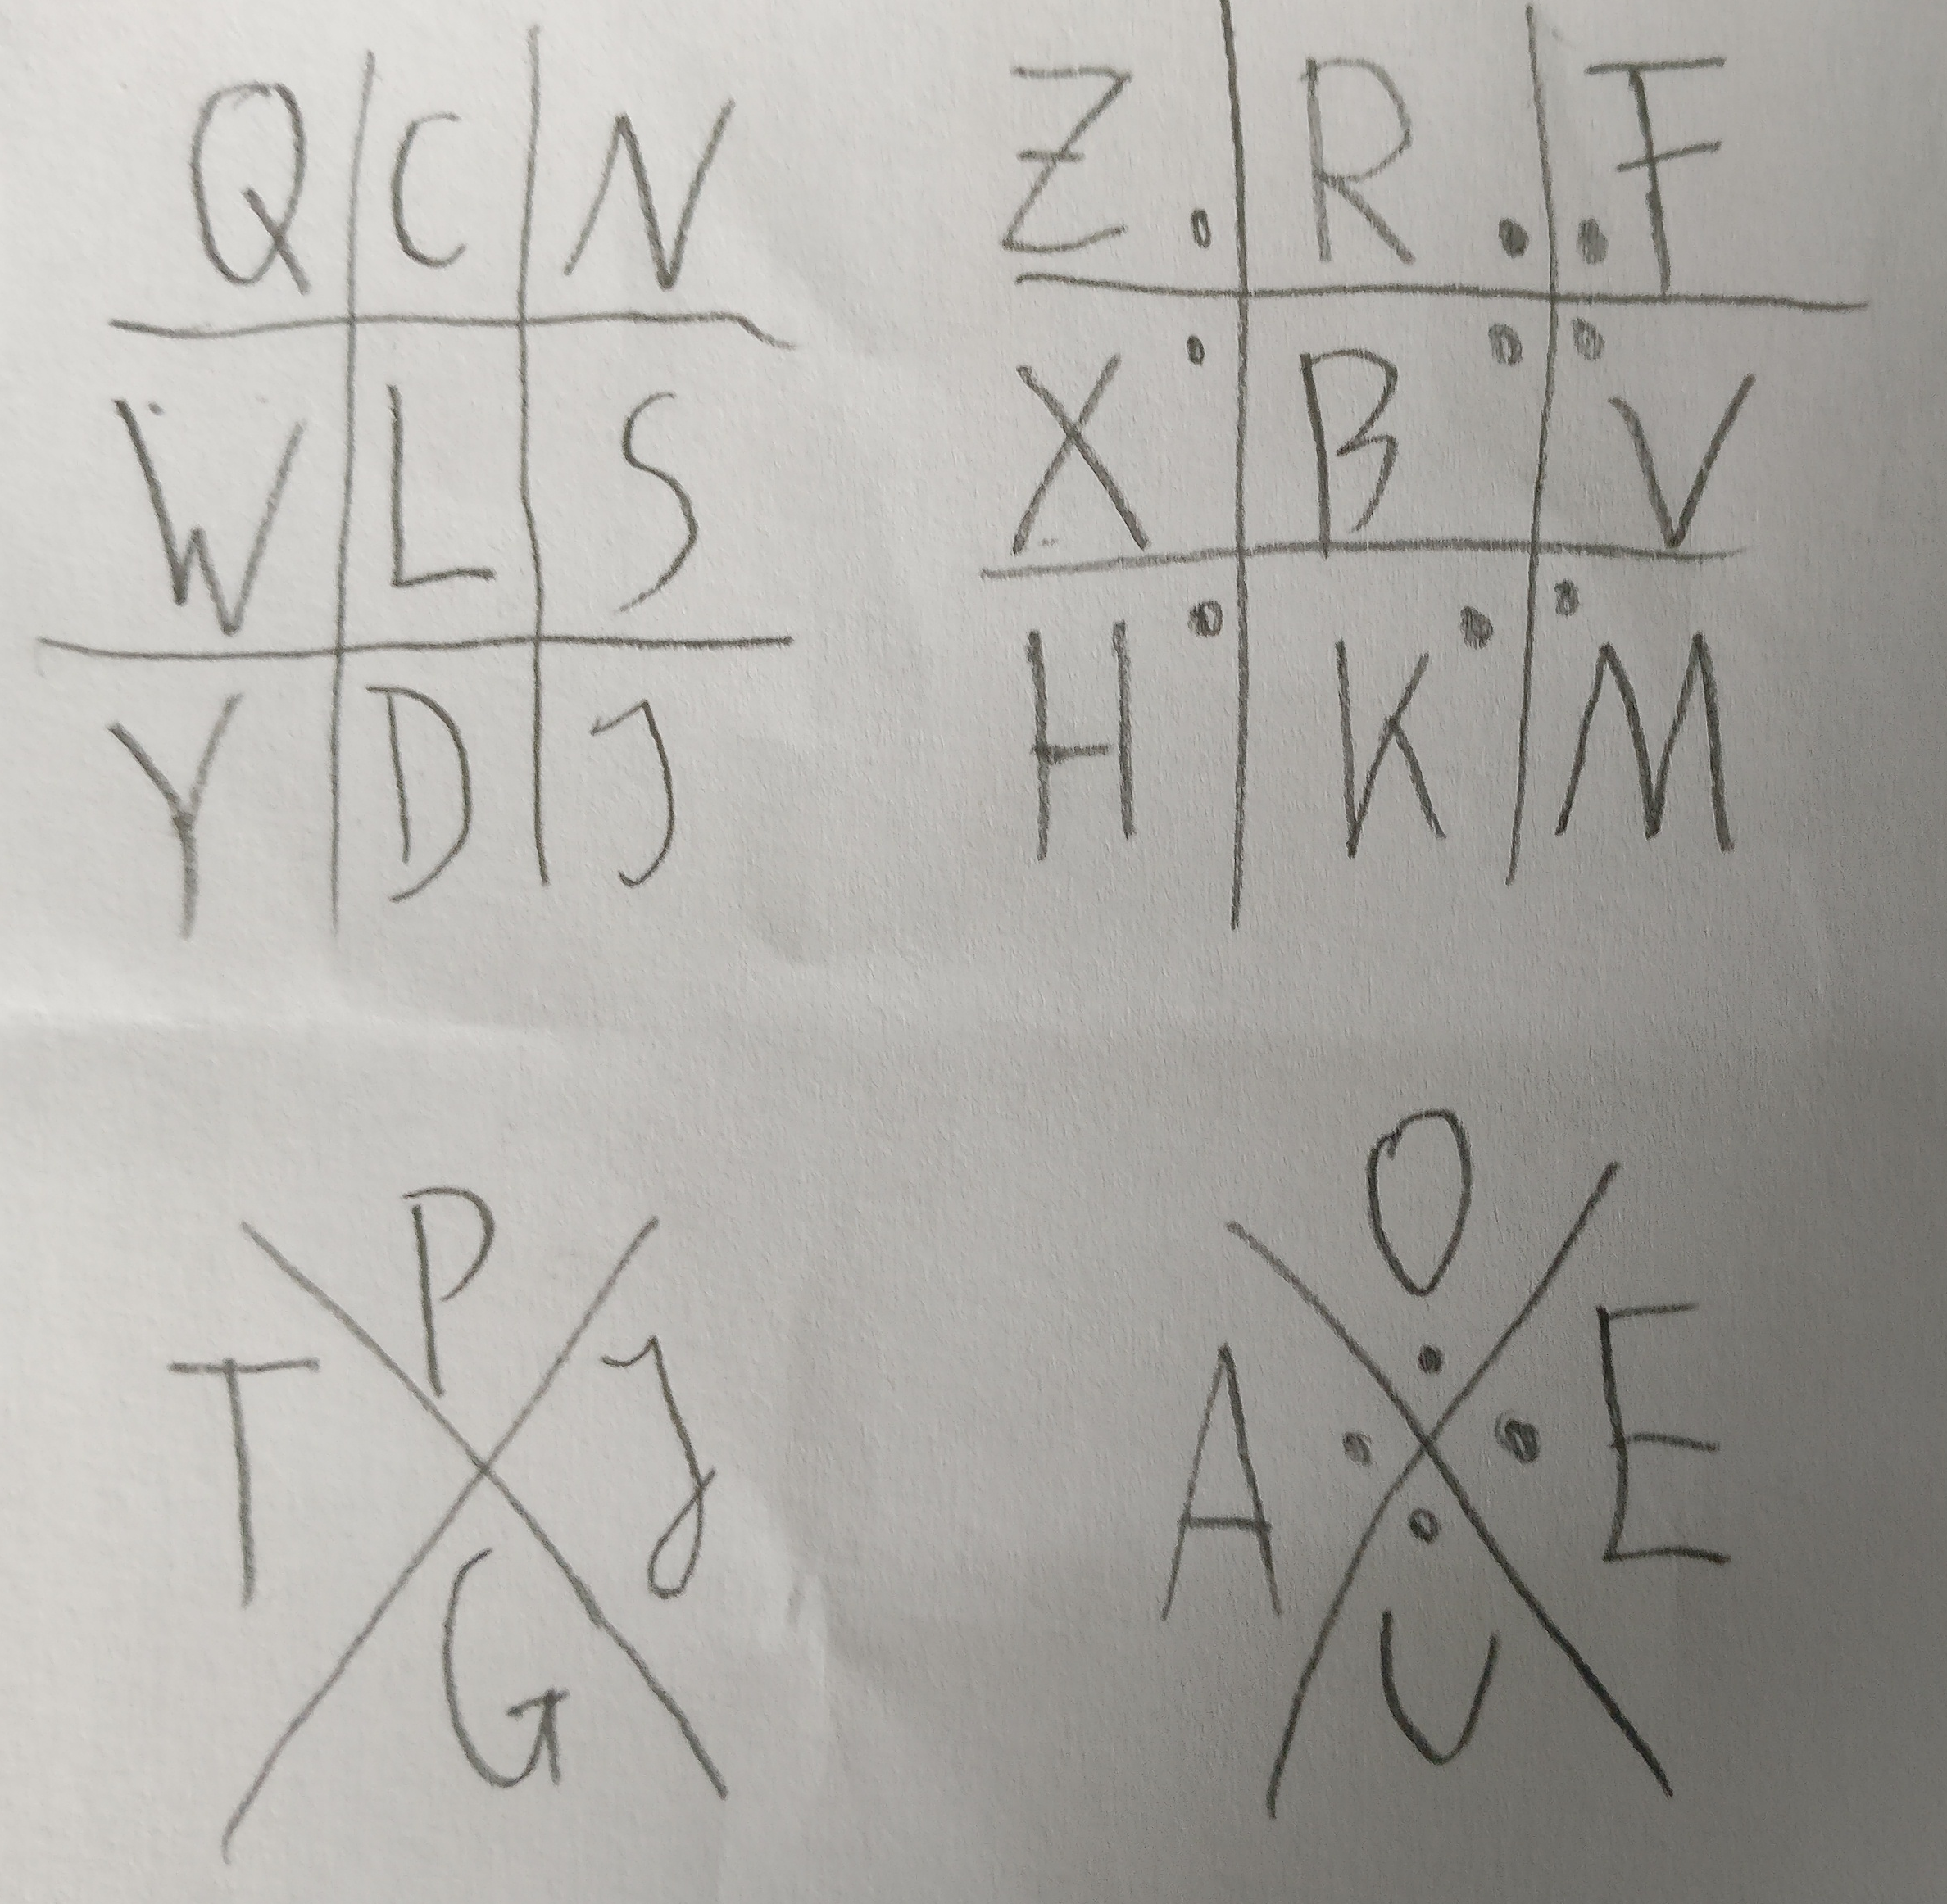 Q C N
W L S
Y D J
Z R F
X B V
H K M
P
T J
G
O
A E
U